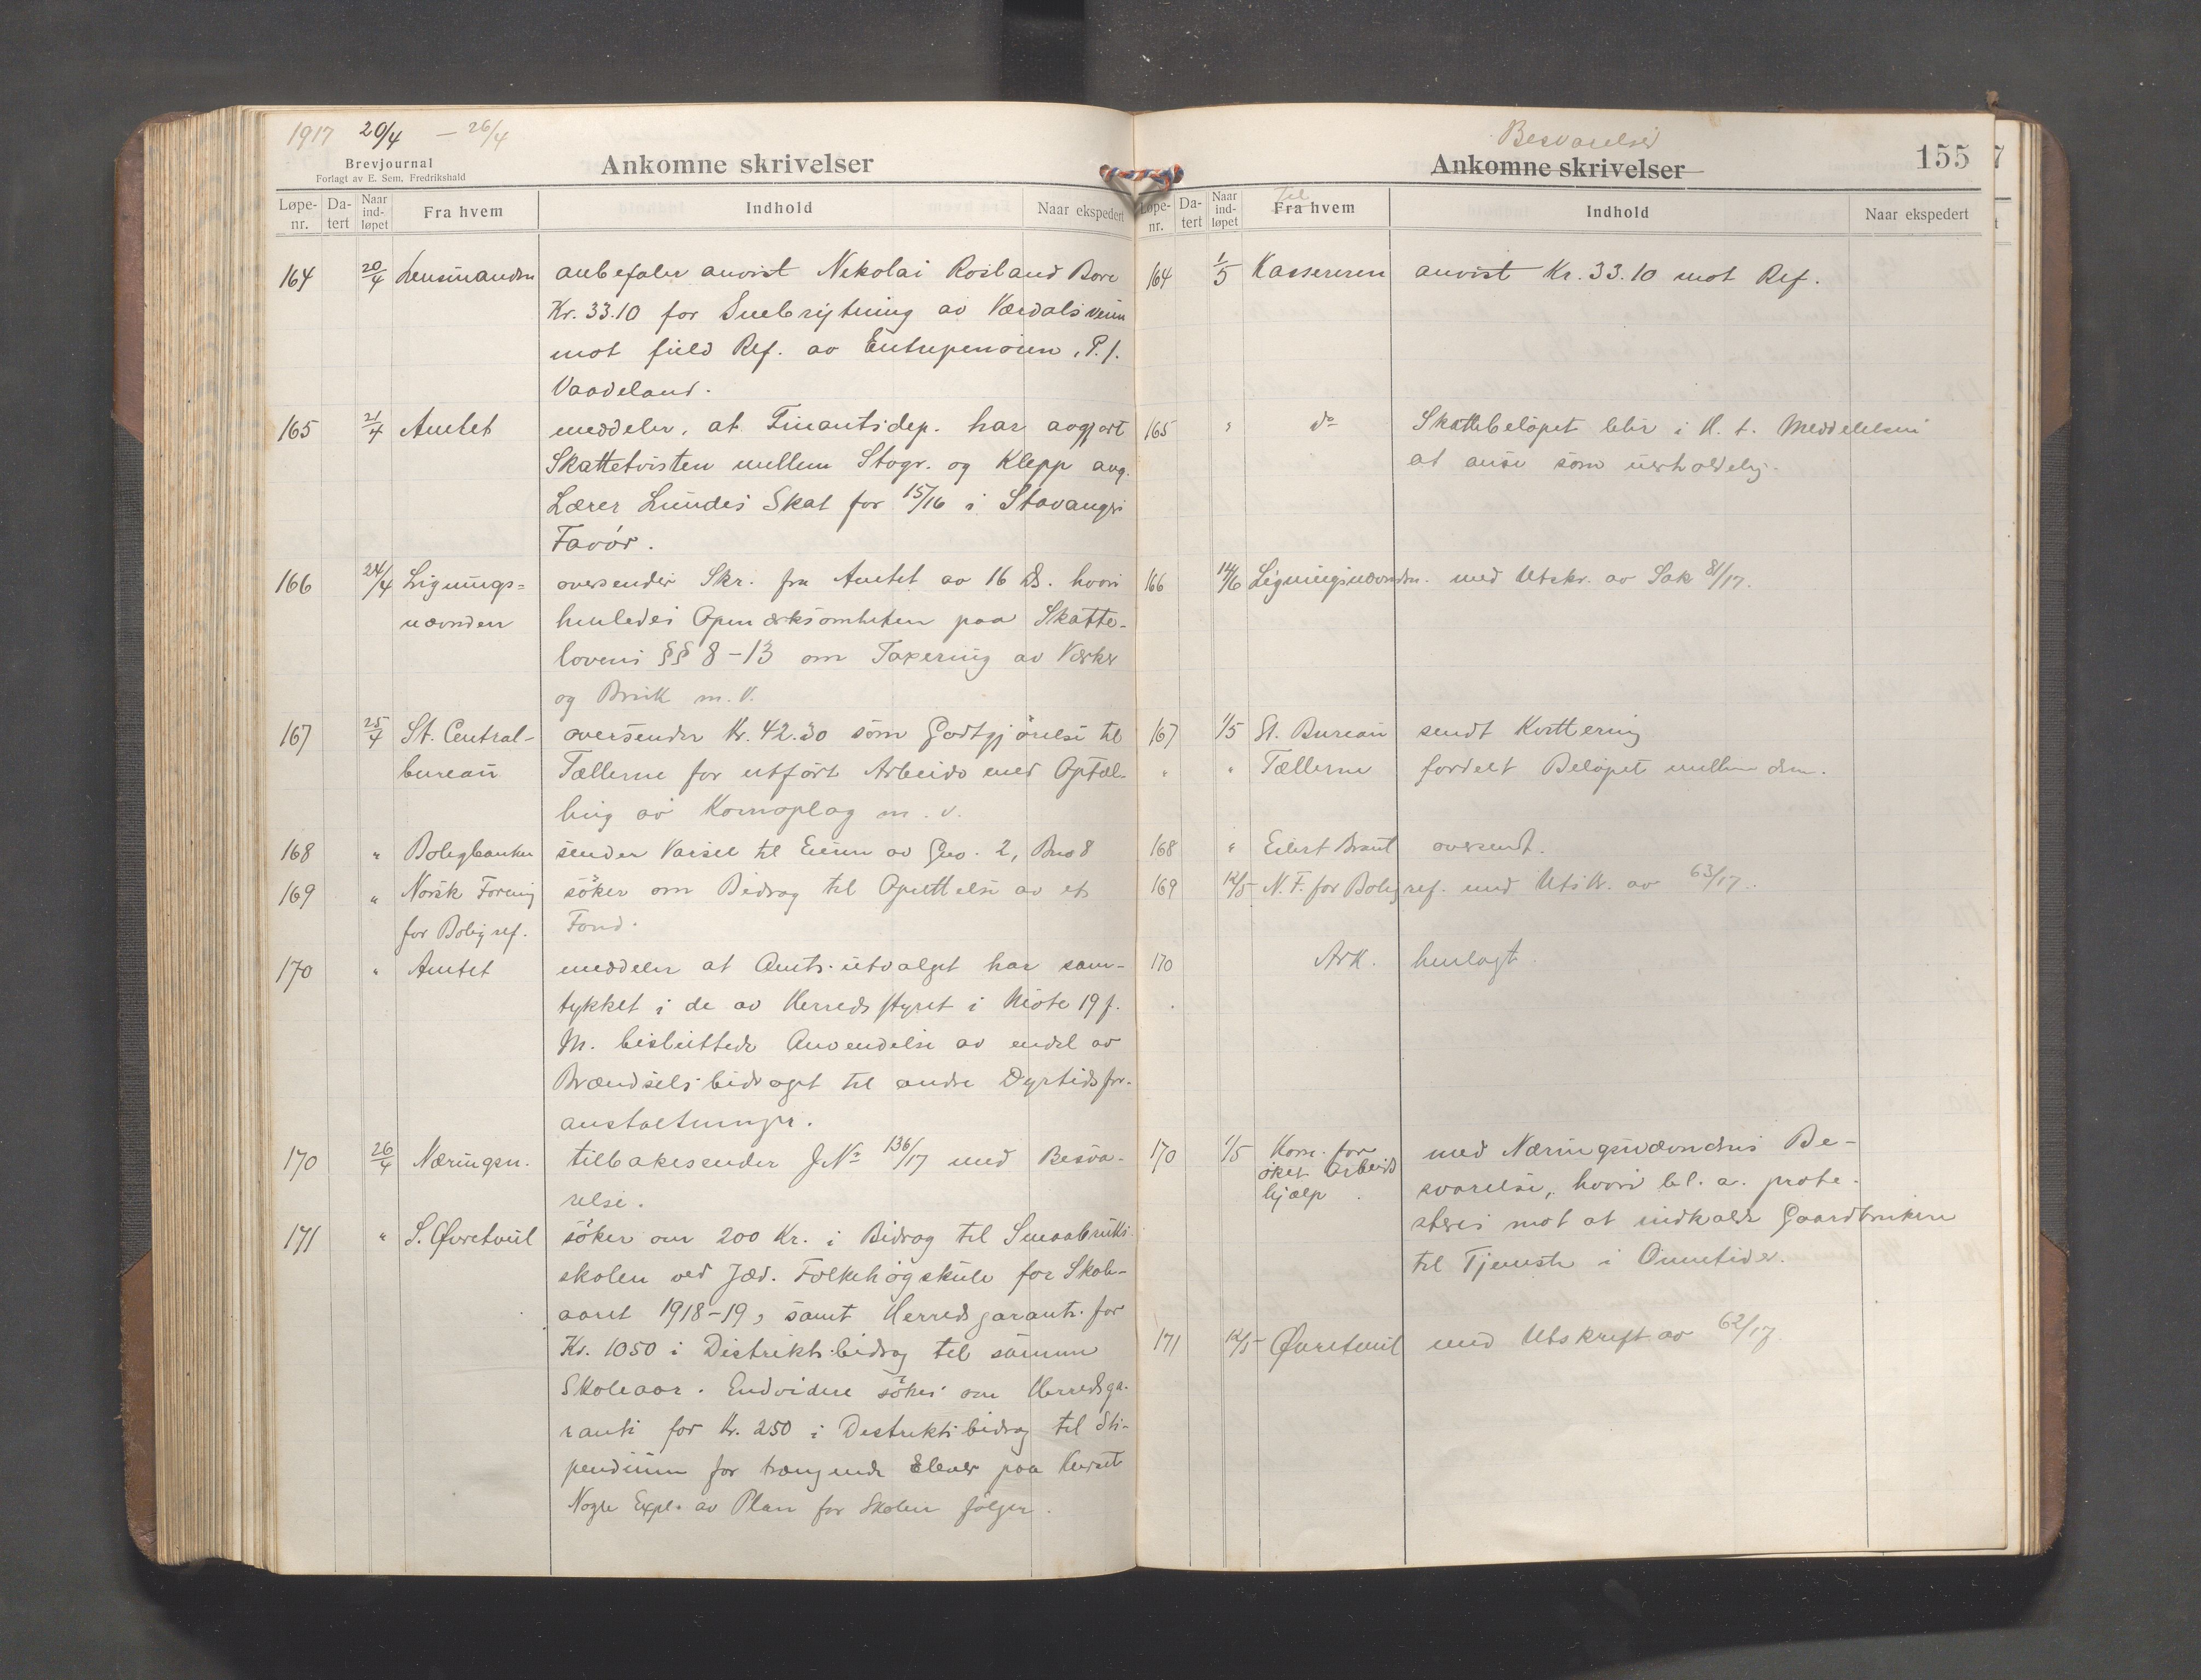 1917 20/4 — 26/4
Brevjournal
Forlagt av E. Sem, Fredrikshald
Ankomne skrivelser
Løpe-nr. Da-tert Naar ind-løpet Fra hvem Indhold Naar ekspedert
164 20/4 Lensmanden anbefaler anvist Nikolai Rosland Bore
Kr. 33.10 for Snebrytning av Værdalsveien
mot fuld Ref. av Entrepenøren, P. J.
Vaadeland.
165 21/4 Amtet meddeler, at Finantsdep. har avgjort
Skattetvisten mellem Stvgr. og Klepp ang.
Lærer Lundes Skat for 15/16 i Stavangers
Favör.
166 24/4 Lignings= oversender Skr. fra Amtet av 16 ds. hvori
nævnden henledes Opmærksomheten paa Skatte-
lovens §§ 8-13 om Taxering av Verker
og Bruk m. v.
167 25/4 St. Central- oversender Kr. 42.30 som Godtgjörelse til
bureau Tællerne for utfört Arbeide med Optæl-
ling av Kornoplag m. v.
168 " Boligbanken sender Varsel til Eieren av Gno. 2, Bno 8
169 " Norsk Forening söker om Bidrag til Oprettelse av et
for Boligref. Fond.
170 " Amtet meddeler at Amts.utvalget har sam-
tykket i de av Herredsstyret i Möte 19 f.
M. besluttede Anvendelse av endel av
Brændselsbidraget til andre Dyrtidsfor-
anstaltninger.
170 26/4 Næringsn. tilbakesender J.No 136/17 med Besva-
relse.
171 " S. Øvretveit söker om 200 Kr. i Bidrag til Smaabruks-
skolen ved Jæd. Folkehögskule for Skole-
aaret 1918-19, samt Herredsgaranti for
Kr. 1050 i Distriktsbidrag til samme
Skoleaar. Endvidere sökes om Herredsga-
ranti for Kr. 250 i Distriktsbidrag til Sti-
pendium for trængende Elever paa Kurset
Nogle Expl. av Plan for Skolen fölger.
Besvarelser
Ankomne skrivelser
155
Løpe-nr. Da-tert Naar ind-løpet Til Fra hvem Indhold Naar ekspedert
164 1/5 Kassereren anvist Kr. 33.10 mot Ref.
165 " do Skattebelöpet blir i H. t. Meddelelsen
at anse som uerholdelig.
166 14/6 Ligningsnævnden. med Utskr. av Sak 81/17.
167 1/5 St. Bureau sendt Kvittering
" " Tællerne fordelt Belöpet mellem dem.
168 " Eilert Braut oversendt.
169 12/5 N. F. for Boligref. med Utskr. av 63/17.
170 Ark. henlagt.
170 1/5 Kom. for med Næringsnævndens Be-
öket Arbeids svarelse, hvori bl. a. prote-
hjælp. steres mot at indkalde Gaardbrukere
til Tjeneste i Onnetider.
171 12/5 Øvretveit med Utskrift av 62/17.